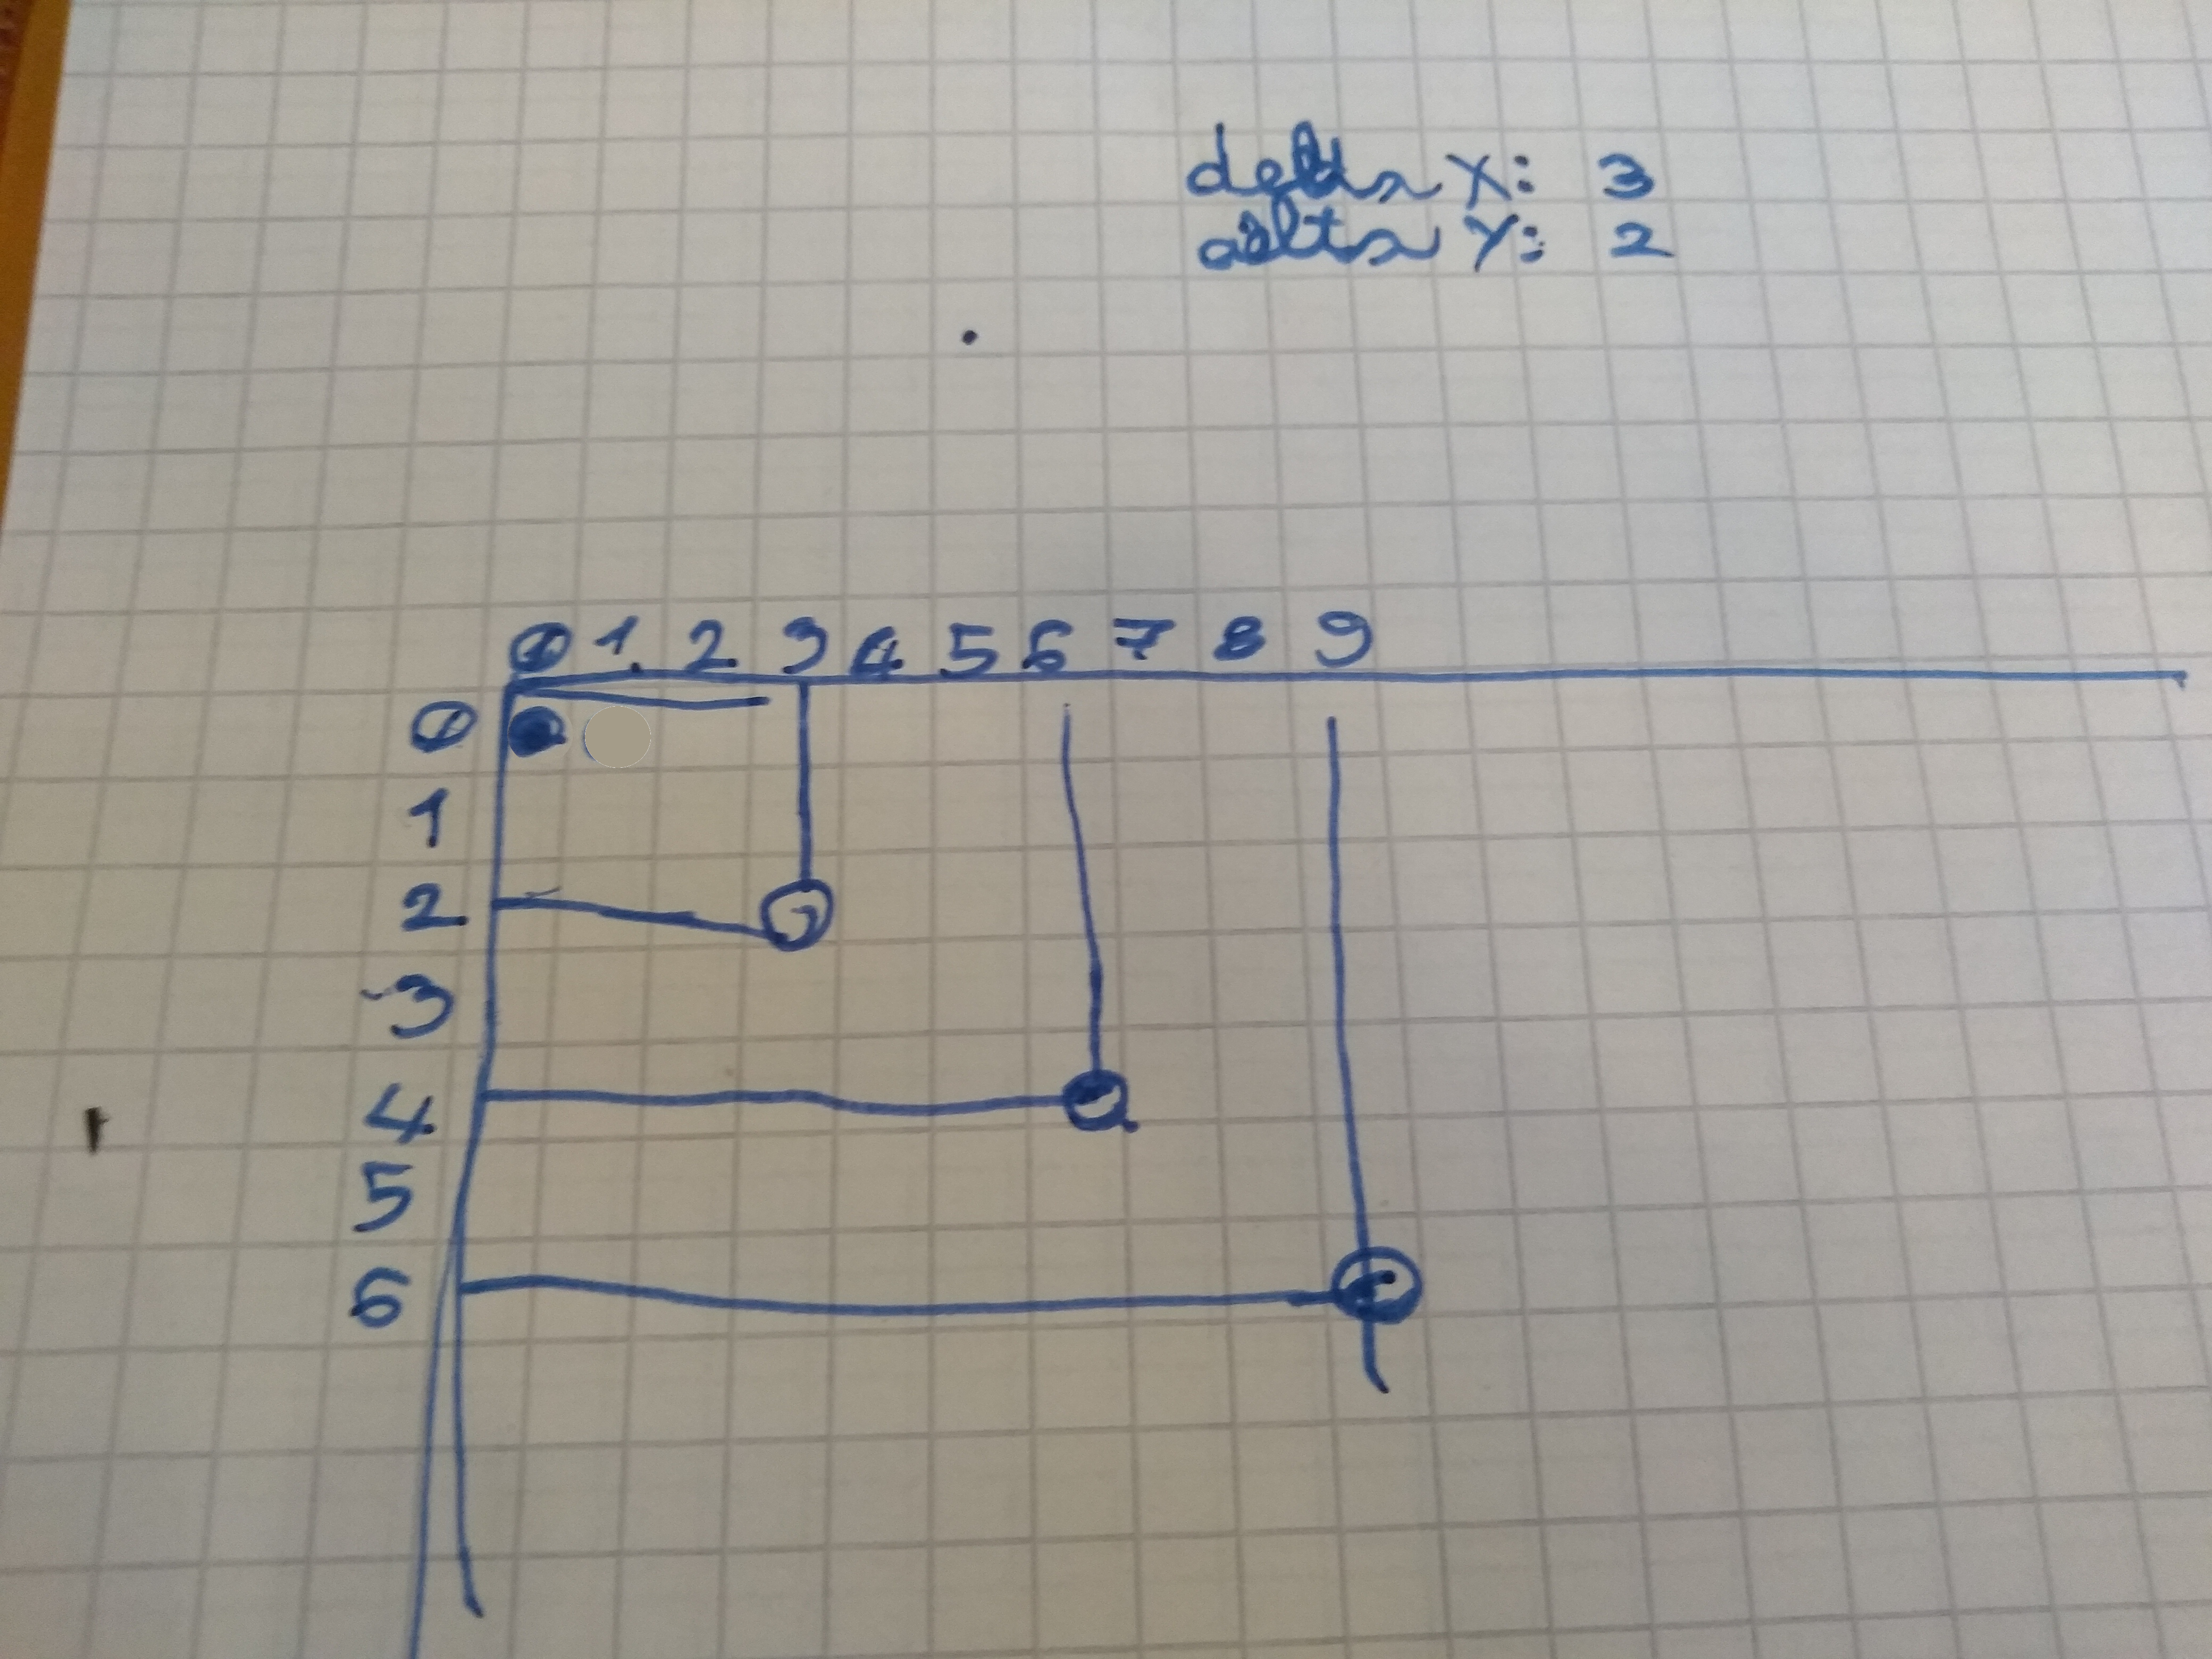 delta X: 3
delta Y: 2
0 1 2 3 4 5 6 7 8 9
0
1
2
3
4
5
6